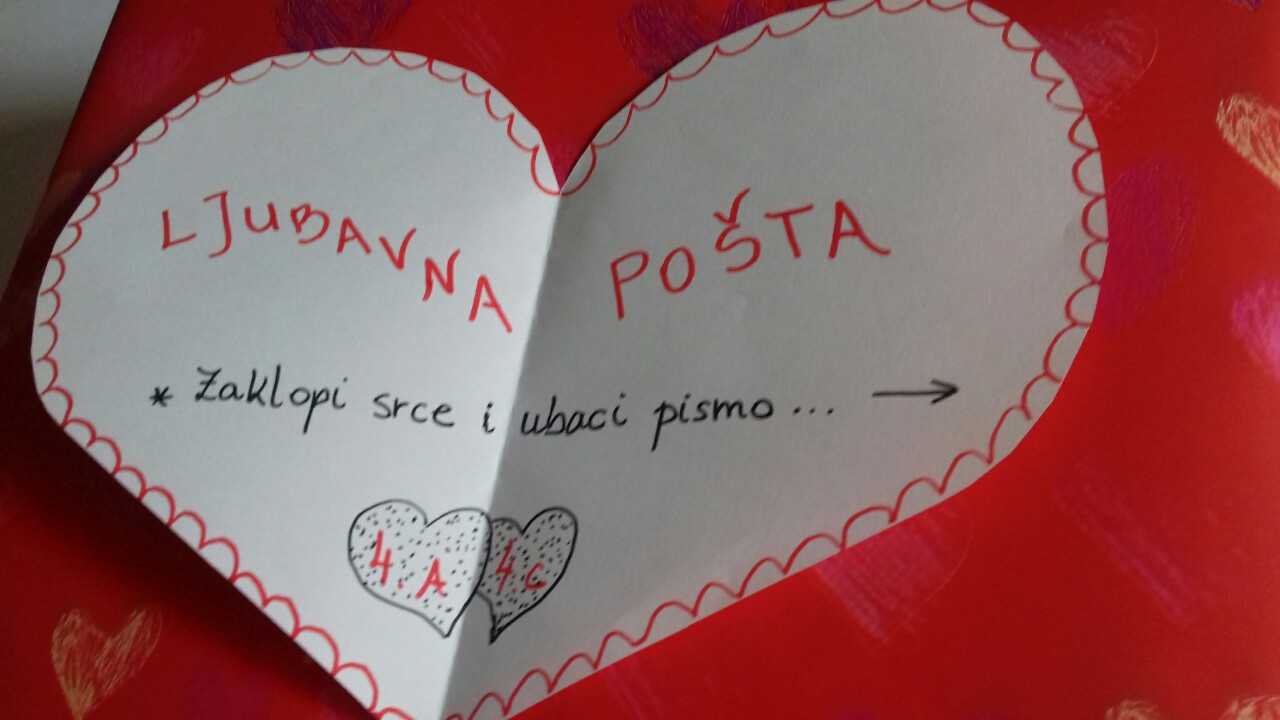 LJUBAVNA POŠTA
* Zaklopi srce i ubaci pismo... →
4. A 4 c